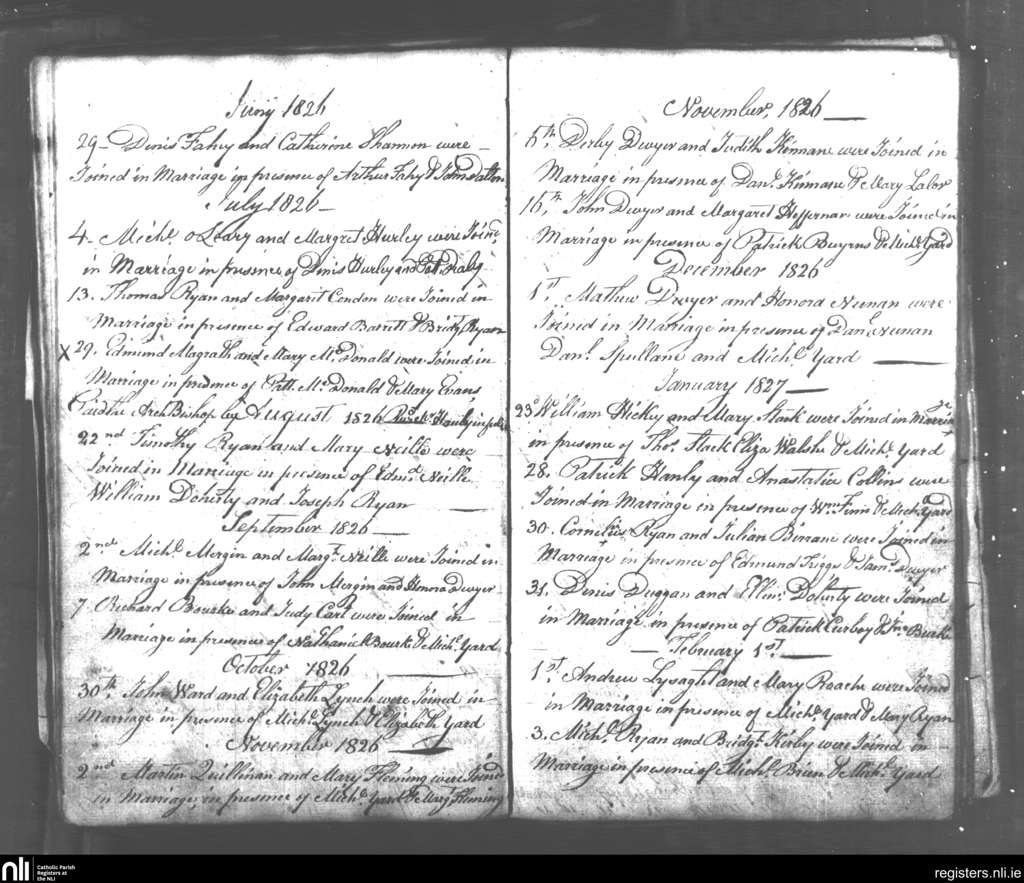 Juny 1826
29 – Denis Fahey and Catherine Shannon were –
Joined in Marriage in presence of Arthur Fahy & John Dalton
July 1826 –
4 – Michl. oLeary and Margret Hurley were Joind
in Marriage in presence of Denis Hurley and Pat.
13. Thomas Ryan and Margarit Condon were Joined in
Marriage in presence of Edward Barrett & Bridgt. Ryan
X 29. Edmund Magrath and Mary Mc.Donald were Joined in
Marriage in presence of Patk. Mc.Donald & Mary Evans
ArchBishop by August 1826
22nd Timothy Ryan and Mary Neille were
Joined in Marriage in presence of Edmd. Neille
William Doherty and Joseph Ryan ——
September 1826 —
2nd Michl. Mergin and Margt. Neille were Joined in
Marriage in presence of John Mergin and Honora Dwyer
7. Richard Bourke and Judy Carl were Joined in
Marriage in presence of Nathaniel Bourk & Michl. Yard
October 1826 ——
30th John Ward and Elizabeth Lynch were Joined in
Marriage in presence of Michl. Lynch & Elizabeth Yard
November 1826 ——
2nd Martin Quillinan and Mary Fleming were Joined
in Marriage in presence of Michl. Yard & Margt. Fleming
November, 1826 —
5th. Derby Dwyer and Judith Kinnane were Joined in
Marriage in presence of Danl. Kinnane & Mary Lalor
16th. John Dwyer and Margaret Heffernan were Joined in
Marriage in presence of Patrick Buyrns & Michl. Yard
December 1826
1st. Mathew Dwyer and Honora Neenan were
Joined in Marriage in presence of Danl. Neenan
Danl. Spullane and Michl. Yard ——
January 1827 —
23d William Hickey and Mary Stack were Joined in Marriage
in presence of Thos. Stack Eliza Walsh & Michl. Yard
28. Patrick Hanly and Anastatia Collins were
Joined in Marriage in presence of Wm. Finn & Michl. Yard
30. Cornelius Ryan and Julian Binane were Joined in
Marriage in presence of Edmund Griggs & Jams. Dwyer
31. Denis Duggan and Ellin. Doherty were Joined
in Marriage in presence of Patrick Curboy & Jno. Burke
— February 1st. —
1st. Andrew Lysaght and Mary Roache were Joined
in Marriage in presence of Michl. Yard & Mary Ryan
3. Michl. Ryan and Bridgt. Kirby were Joined in
Marriage in presence of Michl. Brien & Michl. Yard
nli Catholic Parish
Registers at
the NLI
registers.nli.ie